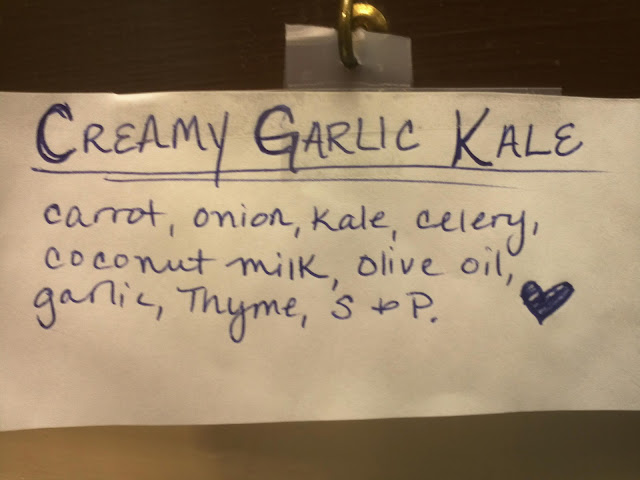 CREAMY GARLIC KALE
carrot, onion, kale, celery,
coconut milk, olive oil,
garlic, Thyme, S & P.